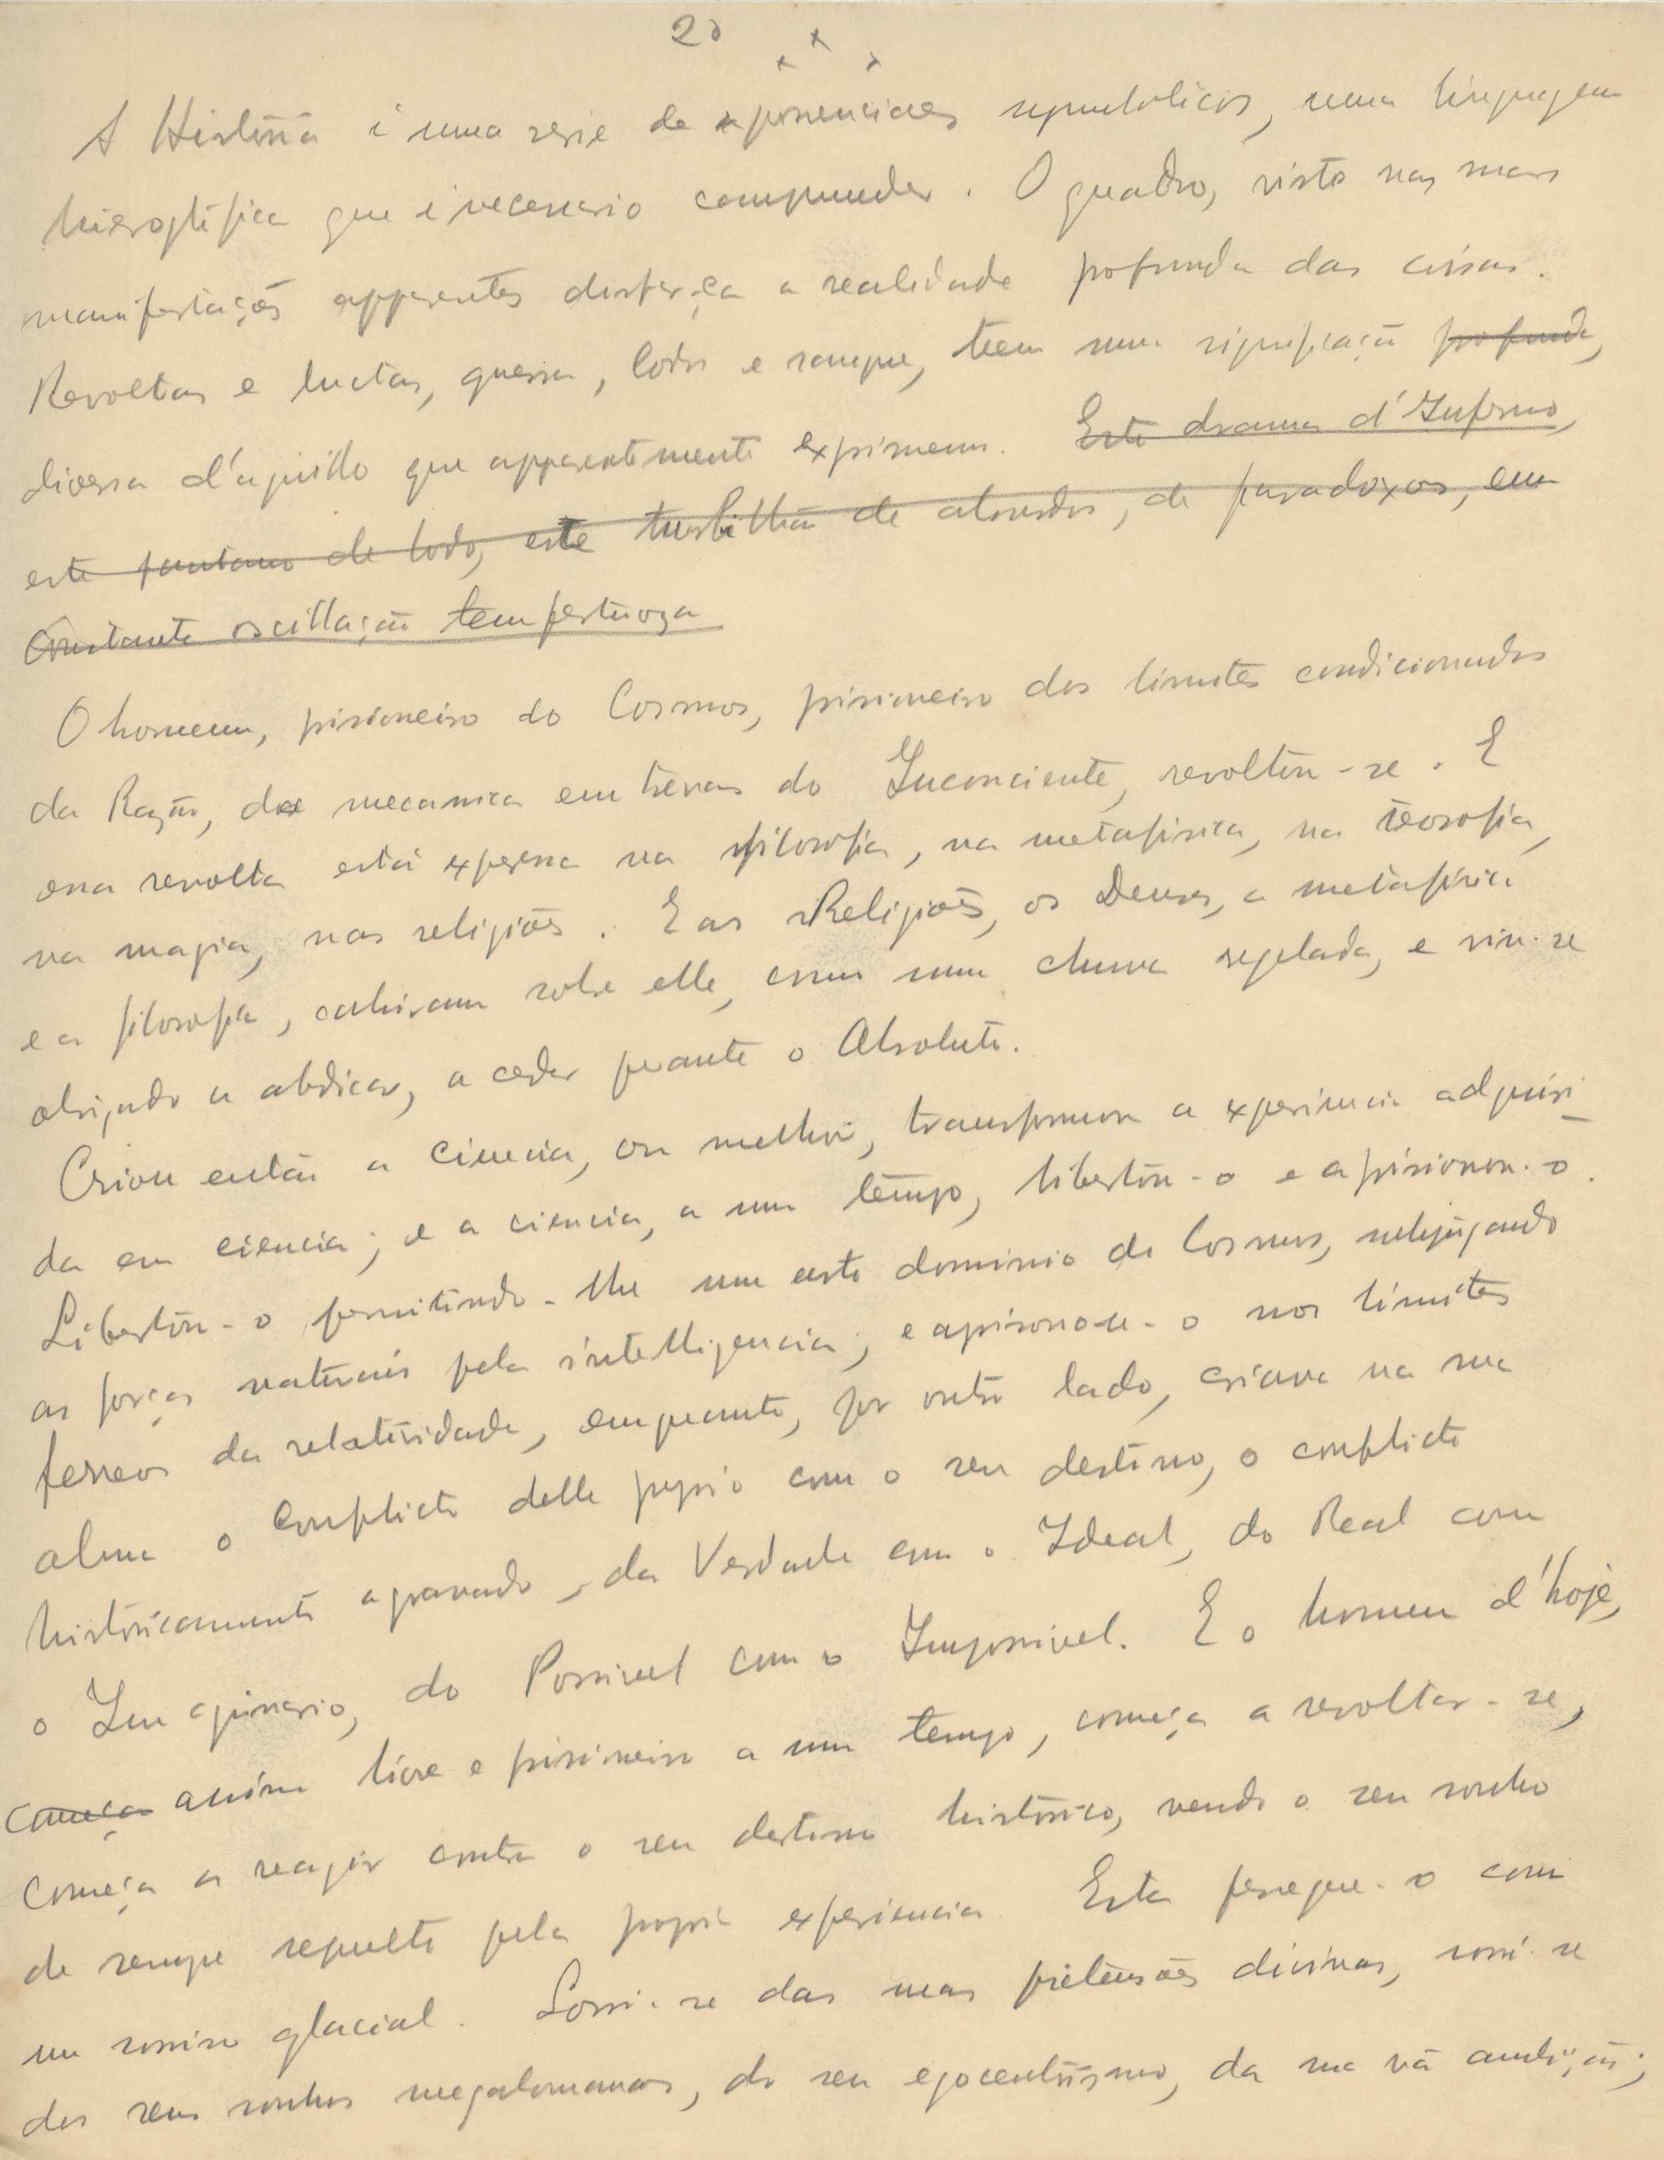 20
A História é uma serie de aparencias symbolicas, uma linguagem
hieroglifica que é necessario comprender. O quadro, visto nas suas
manifestações apparentes disfarça a realidade profunda das coisas.
Revoltas e luctas, guerra, lodo e sangue, teem uma significação profunda,
diversa d'aquillo que apparentemente exprimem. Este drama d'Inferno,
este pantano de lodo, este turbilhão de absurdos, de paradoxos, em
Constante oscillação tempestuoza
O homem, prisioneiro do Cosmos, prisioneiro dos limites condicionados
da Razão, da mecanica em trevas do Inconciente, revoltou-se. E
essa revolta está expressa na filosofia, na metafisica, na teosofia,
na magia, nas religiões. E as Religiões, os Deuses, a metafisica
e a filosofia, cahiram sobre elle, como uma chuva regelada, e viu-se
obrigado a abdicar, a ceder perante o Absoluto.
Criou então a Ciencia, ou melhor, transformou a experiencia adquiri-
da em ciencia; e a ciencia, a um tempo, libertou-o e aprisionou-o.
Libertou-o permitindo-lhe um certo dominio do Cosmos, subjugando
as forças naturaes pela intelligencia; e aprisonou-o nos limites
ferreos da relatividade, emquanto, por outro lado, criava na sua
alma o Conflicto delle proprio com o seu destino, o conflicto
historicamente agravado, da Verdade com o Ideal, do Real com
o Imaginario, do Possivel com o Impossivel. E o homem d'hoje,
Começa assim livre e prisioneiro a um tempo, começa a revoltar-se,
Começa a reagir contra o seu destino historico, vendo o seu sonho
de sempre sepulto pela propria experiencia. Esta persegue-o com
um sorriso glacial. Sorri-se das suas pretensões divinas, sorri-se
dos seus sonhos megalomanos, do seu egocentrismo, da sua vã ambição;